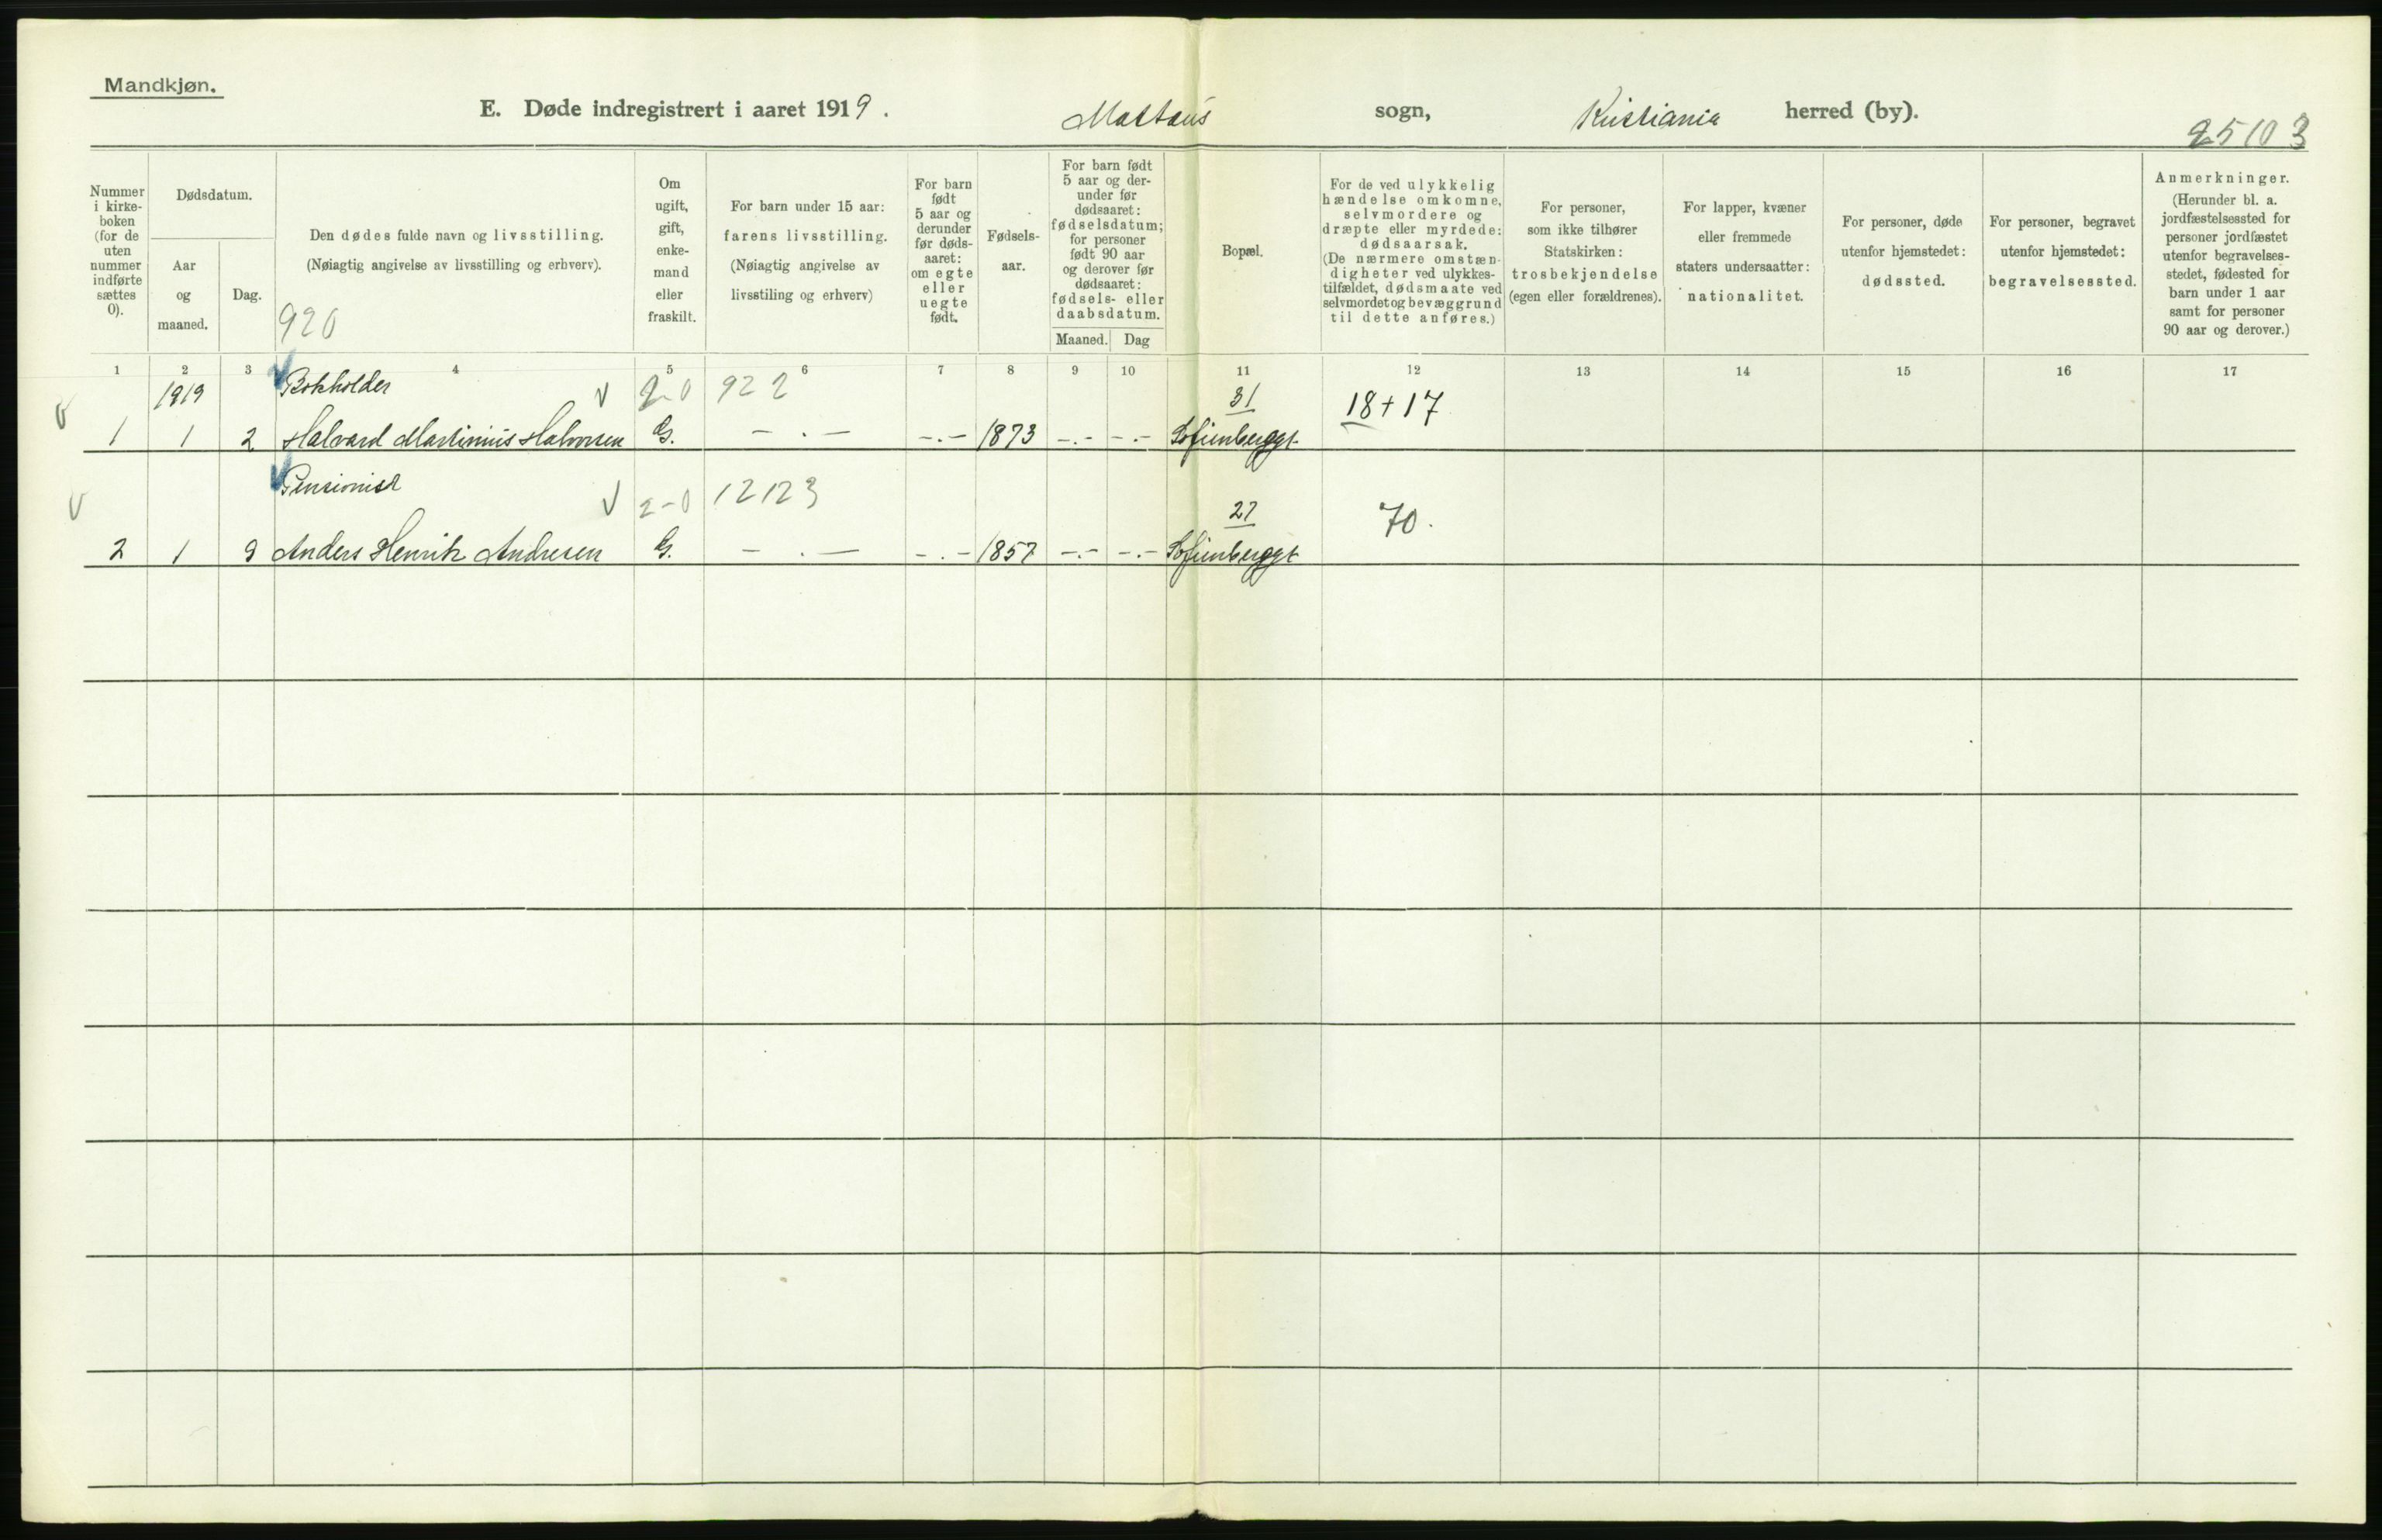 Mandkjøn.
E. Døde indregistrert i aaret 1919. Mattæus sogn, Kristiania herred (by).
25103
Nummer i kirke-boken (for de uten nummer indførte sættes 0).
Dødsdatum.
Aar og maaned.
Dag.
Den dødes fulde navn og livsstilling.
(Nøiagtig angivelse av livsstilling og erhverv).
920
Om ugift, gift, enke-mand eller fraskilt.
For barn under 15 aar: farens livsstilling.
(Nøiagtig angivelse av livsstiling og erhverv)
For barn født 5 aar og derunder før døds-aaret: om egte eller uegte født.
Fødsels-aar.
For barn født 5 aar og der-under før dødsaaret: fødselsdatum; for personer født 90 aar og derover før dødsaaret: fødsels- eller daabsdatum.
Maaned.
Dag
Bopæl.
For de ved ulykkelig hændelse omkomne, selvmordere og dræpte eller myrdede: dødsaarsak.
(De nærmere omstæn-digheter ved ulykkes-tilfældet, dødsmaate ved selvmordet og bevæggrund til dette anføres.)
For personer, som ikke tilhører Statskirken: trosbekjendelse (egen eller forældrenes).
For lapper, kvæner eller fremmede staters undersaatter: nationalitet.
For personer, døde utenfor hjemstedet: dødssted.
For personer, begravet utenfor hjemstedet: begravelsessted.
Anmerkninger.
(Herunder bl. a. jordfæstelsessted for personer jordfæstet utenfor begravelses-stedet, fødested for barn under 1 aar samt for personer 90 aar og derover.)
1 2 3 4 5 6 7 8 9 10 11 12 13 14 15 16 17
1919 Bokholder 2-0 922 31 18+17
1 1 2 Halvard Martinius Halvorsen G. -.- -.- 1873 -.- -.- Sofienberggt.
Pensionist 2-0 12123 27 70.
2 1 9 Anders Henrik Andresen G. -.- -.- 1857 -.- -.- Sofienberggt